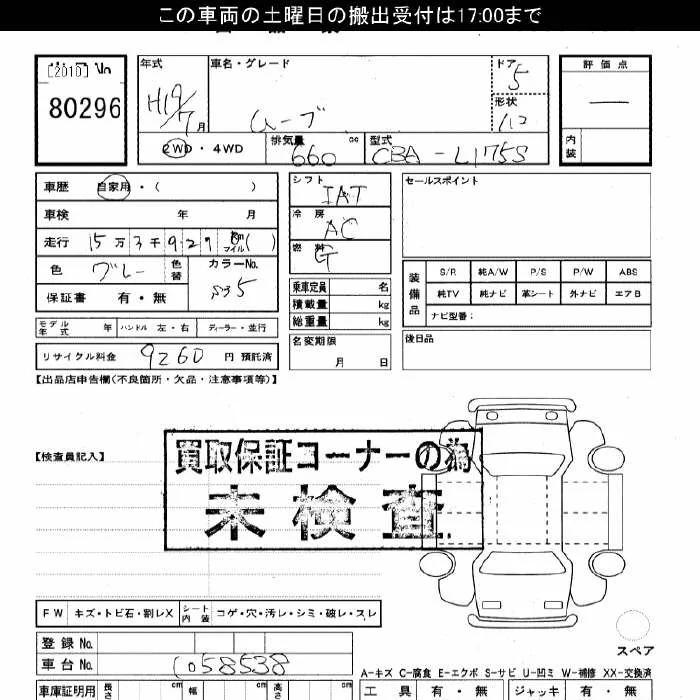 この車両の土曜日の搬出受付は17:00まで
[2010] No
80296
年式 H19/7月
車名・グレード ムーブ
ドア 5
形状
評価点 —
内装
2WD・4WD
排気量 660 cc
型式 CBA-L175S
車歴 自家用・( )
車検 年 月
走行 15万3千929 km マイル ( )
色 グレー 色替 カラーNo. S35
保証書 有・無
モデル年式 年 ハンドル 左・右 ディーラー・並行
リサイクル料金 9260 円 預託済
シフト IAT
冷房 AC
燃料 G
乗車定員 名
積載量 kg
総重量 kg
名変期限 月 日
セールスポイント
装備品
S/R 純A/W P/S P/W ABS
純TV 純ナビ 革シート 外ナビ エアB
ナビ型番:
後日品
【出品店申告欄(不良箇所・欠品・注意事項等)】
【検査員記入】
買取保証コーナーの為
未検査
FW キズ・トビ石・割レX シート内装 コゲ・穴・汚レ・シミ・破レ・スレ
登録No.
車台No. 1058538
車庫証明用 長さ cm 幅 cm 高さ cm
スペア
A-キズ C-腐食 E-エクボ S-サビ U-凹ミ W-補修 XX-交換済
工具 有・無 ジャッキ 有・無